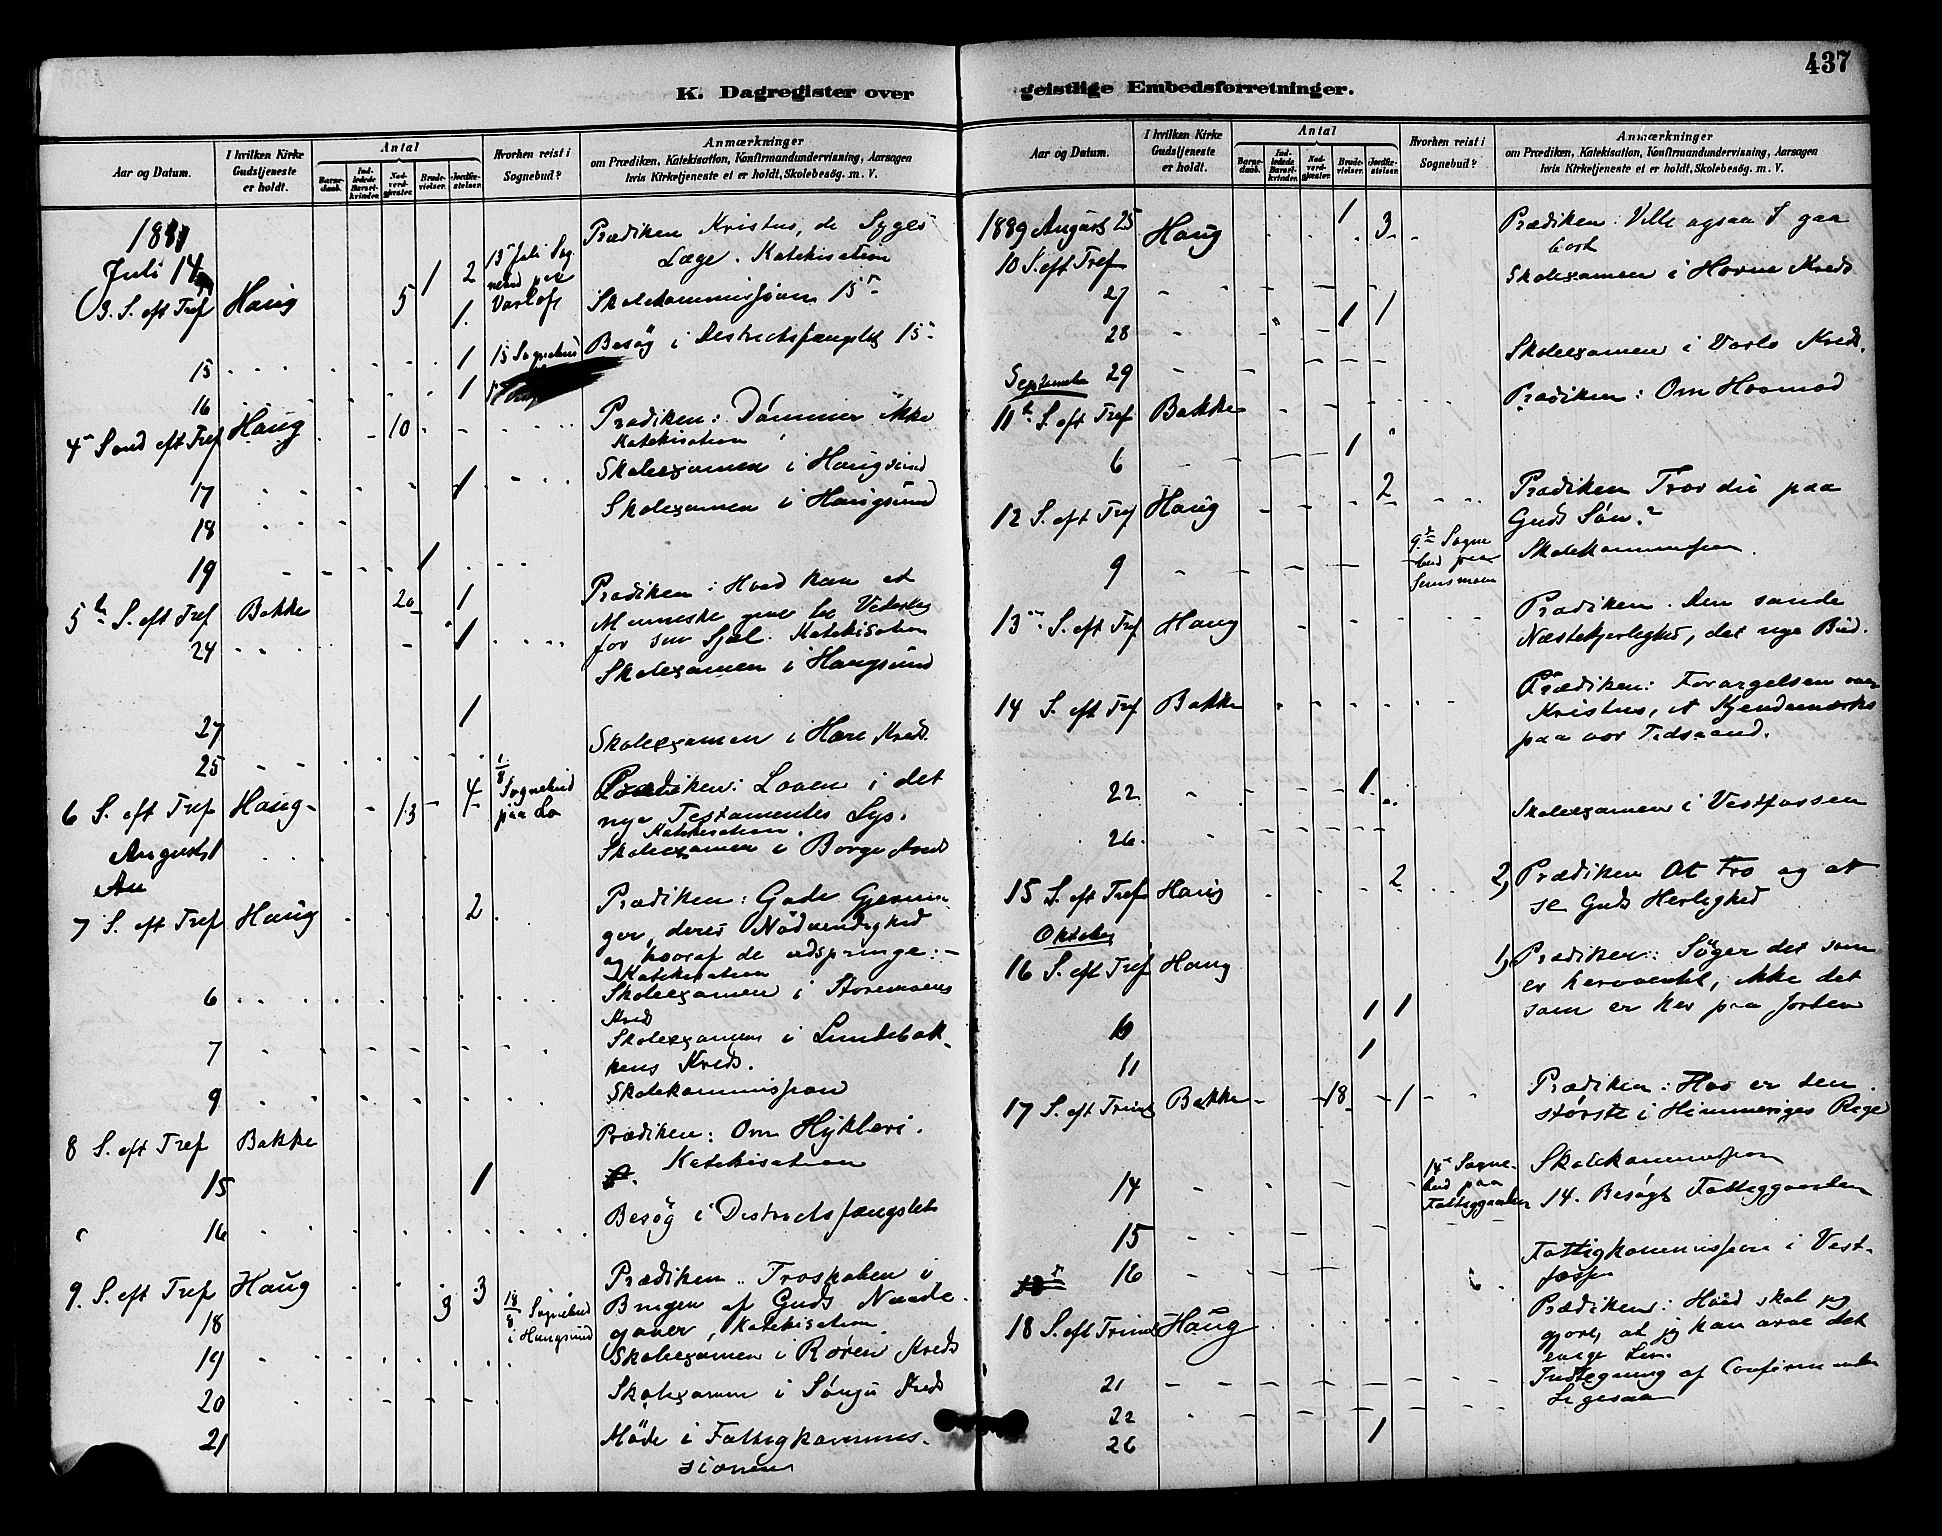 437
K. Dagregister over geistlige Embedsforretninger.
Aar og Datum.
I hvilken Kirke Gudstjeneste er holdt.
Antal
Barnedaab.
Indledede Barselkvinder.
Nadvergjæster.
Brudevielser.
Jordfæstelser.
Hvorhen reist i Sognebud?
Anmærkninger
om Prædiken, Katekisation, Konfirmandundervisning, Aarsagen
hvis Kirketjeneste ei er holdt, Skolebesøg. m. V.
Juli 14
3. S. eft Tref Haug 5 1 2
Prædiken Kristus, de Syges
Læge. Katekisation
Skolekommissjon 15
15 1
15 Sognebud
Besøg i Destriktsfængslet 15
16 1
4 Sønd eft Tref Haug 10
Prædiken: Dømmer ikke
Katekisation
17 1
Skoleexamen i Haugsund
18
Skoleexamen i Haugsund
19 1
5te S. eft Tref Bakke 20 1
Prædiken: Hvad kan et
Menneske give til Vederlag
for sin Sjæl. Katekisation
24 1
Skoleexamen i Haugsund
27 1
25
Skoleexamen i Hære Kreds
6 S. eft Tref Haug 13 4
1/8 Sognebud
paa Lo
Prædiken: Loven i det
nye Testamentes Lys.
Katekisation.
August 1
Skoleexamen i Borge Kreds
7 S. eft Tref Haug 2
Prædiken: Gode Gjerninger, deres Nødvendighed
og hvoraf de udspringe:
Katekisation
6
Skoleexamen i Storemoens
Kreds
7
Skoleexamen i Lundebakkens Kreds.
9
Skolekommissjon
8 S. eft Tref Bakke
Prædiken: Om Hykleri.
Katekisation
15 1
16
Besøg i Distriktsfængslet
9. S. eft Tref Haug 3 3
Prædiken: Troskaben i
Brugen af Guds Naadegaver, Katekisation
18
18/8 Sognebud
i Haugsund
19
Skoleexamen i Røren Kreds
20
Skolexamen i Sønju Kreds
21
Møde i Fattigkommissionen
Aar og Datum.
I hvilken Kirke Gudstjeneste er holdt.
Antal
Barnedaab.
Indledede Barselkvinder.
Nadvergjæster.
Brudevielser.
Jordfæstelser.
Hvorhen reist i Sognebud?
Anmærkninger
om Prædiken, Katekisation, Konfirmandundervisning, Aarsagen
hvis Kirketjeneste ei er holdt, Skolebesøg. m. V.
1889 August 25 Haug 1 3
10 S. eft Tref
Prædiken: Ville ogsaa I gaa
bort
27
Skoleexamen i Hovne Kreds
28 1 1
29
Skoleexamen i Varlo Kreds.
September
11te S. eft Tref Bakke
Prædiken: Om Hovmod
6 1
12 S. eft Tref Haug 2
Prædiken Tror du paa
Guds Søn?
9
9de Sognebud paa
Skolekommission.
13 S. eft Tref Haug
Prædiken. Den sande
Næstekjerlighed, det nye Bud.
14 S. eft Tref Bakke
Prædiken: Forargelsen over
Kristus, et Kjendemærke
paa vor Tidsaand.
22 1
26
Skoleexamen i Vestfossen
15 S. eft Tref Haug 2
2, Prædiken At Tro og at
se Guds Herlighed
Oktober
16 S. eft Tref Haug
1, Prædiken: Søger det som
er heroventil, ikke det
som er her paa Jorden
10 1 1
11 1
17 S. eft Trinit Bakke 18 1
Prædiken: Hvo er den
største i Himmeriges Rige
14
14 Sognebud paa
Fattiggaarden
Skolekommission
14. Besøgt Fattiggaarden
15
16
Fattigkommission i Vestfossen
18 S. eft Trinit Haug
Prædiken: Hvad skal jeg
gjøre, at jeg kan arve det
evige Liv.
21
Indtegning af Confirmander
22
Ligesaa
26 1